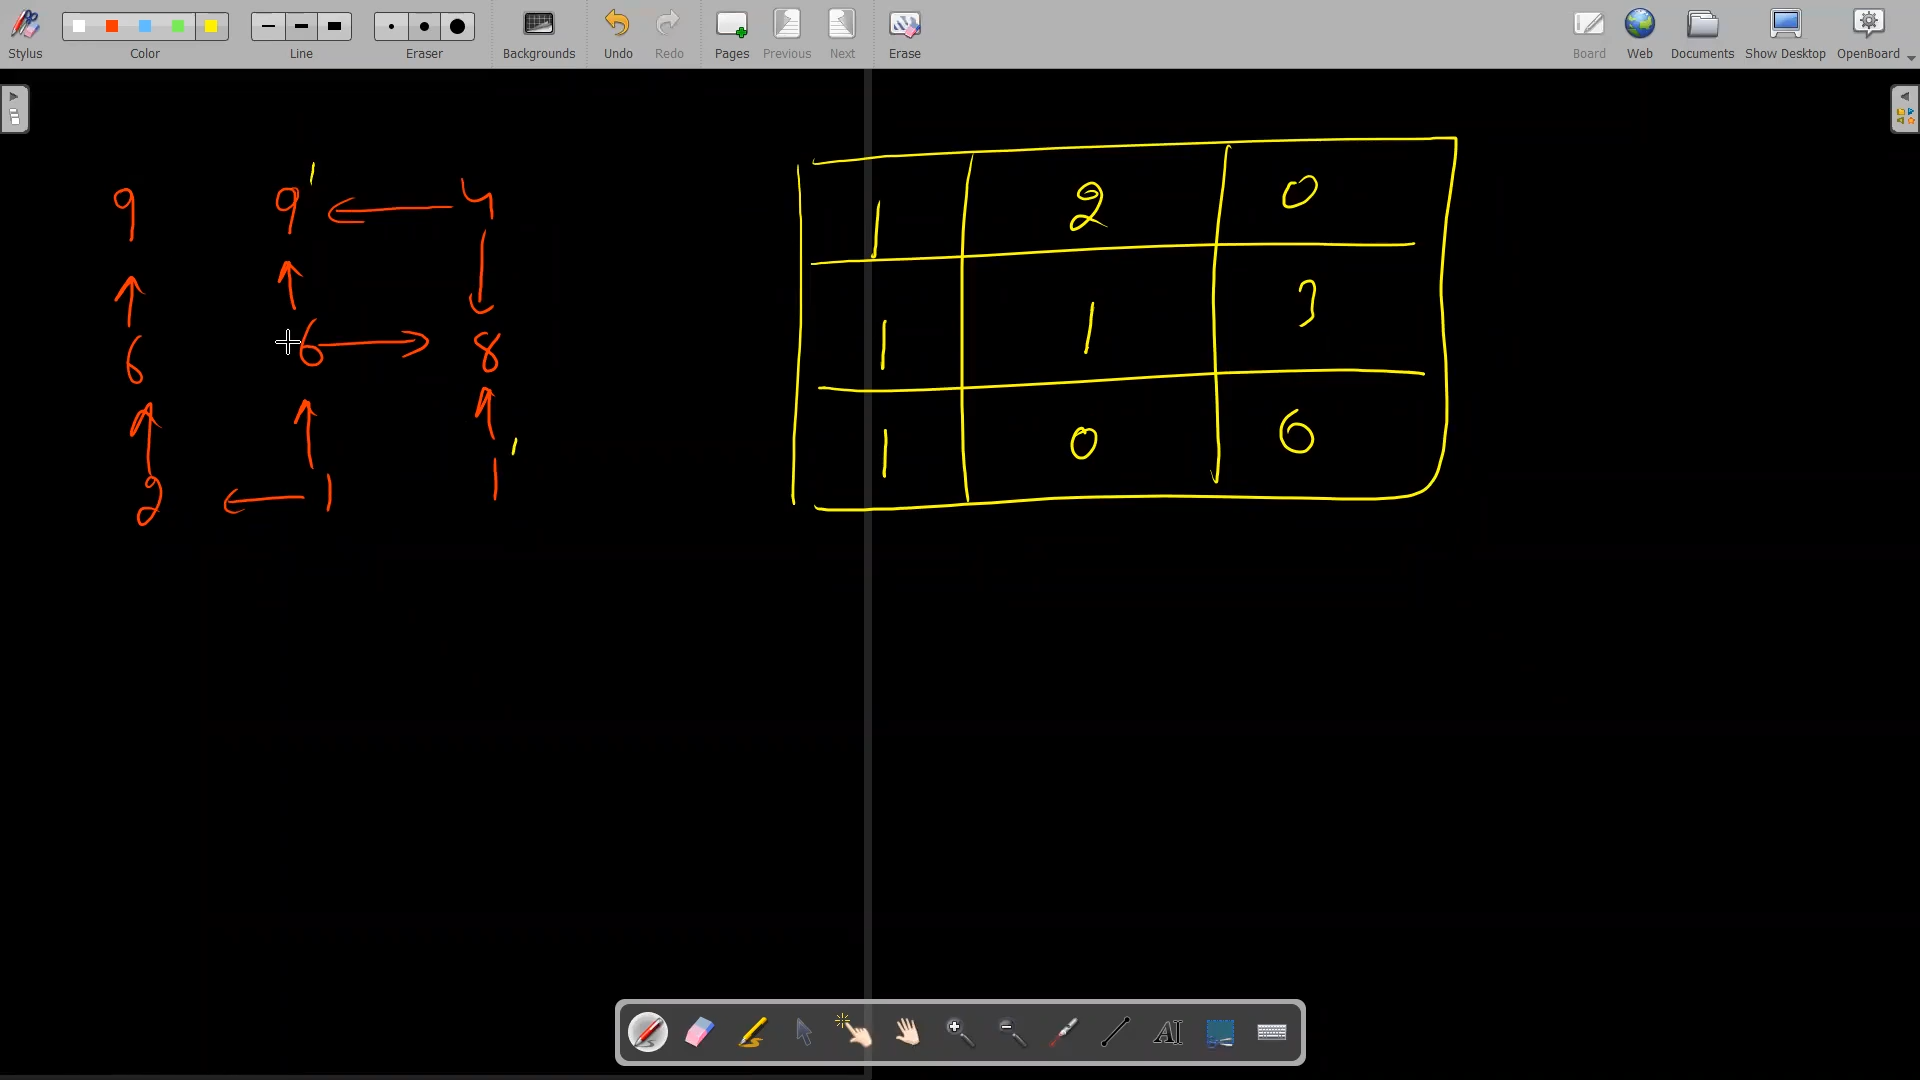 Stylus Color Line Eraser Backgrounds Undo Redo Pages Previous Next Erase Board Web Documents Show Desktop OpenBoard
9 9 ' 4
6 6 8
2 1 1 '
1 2 0
1 1 3
1 0 6
AI